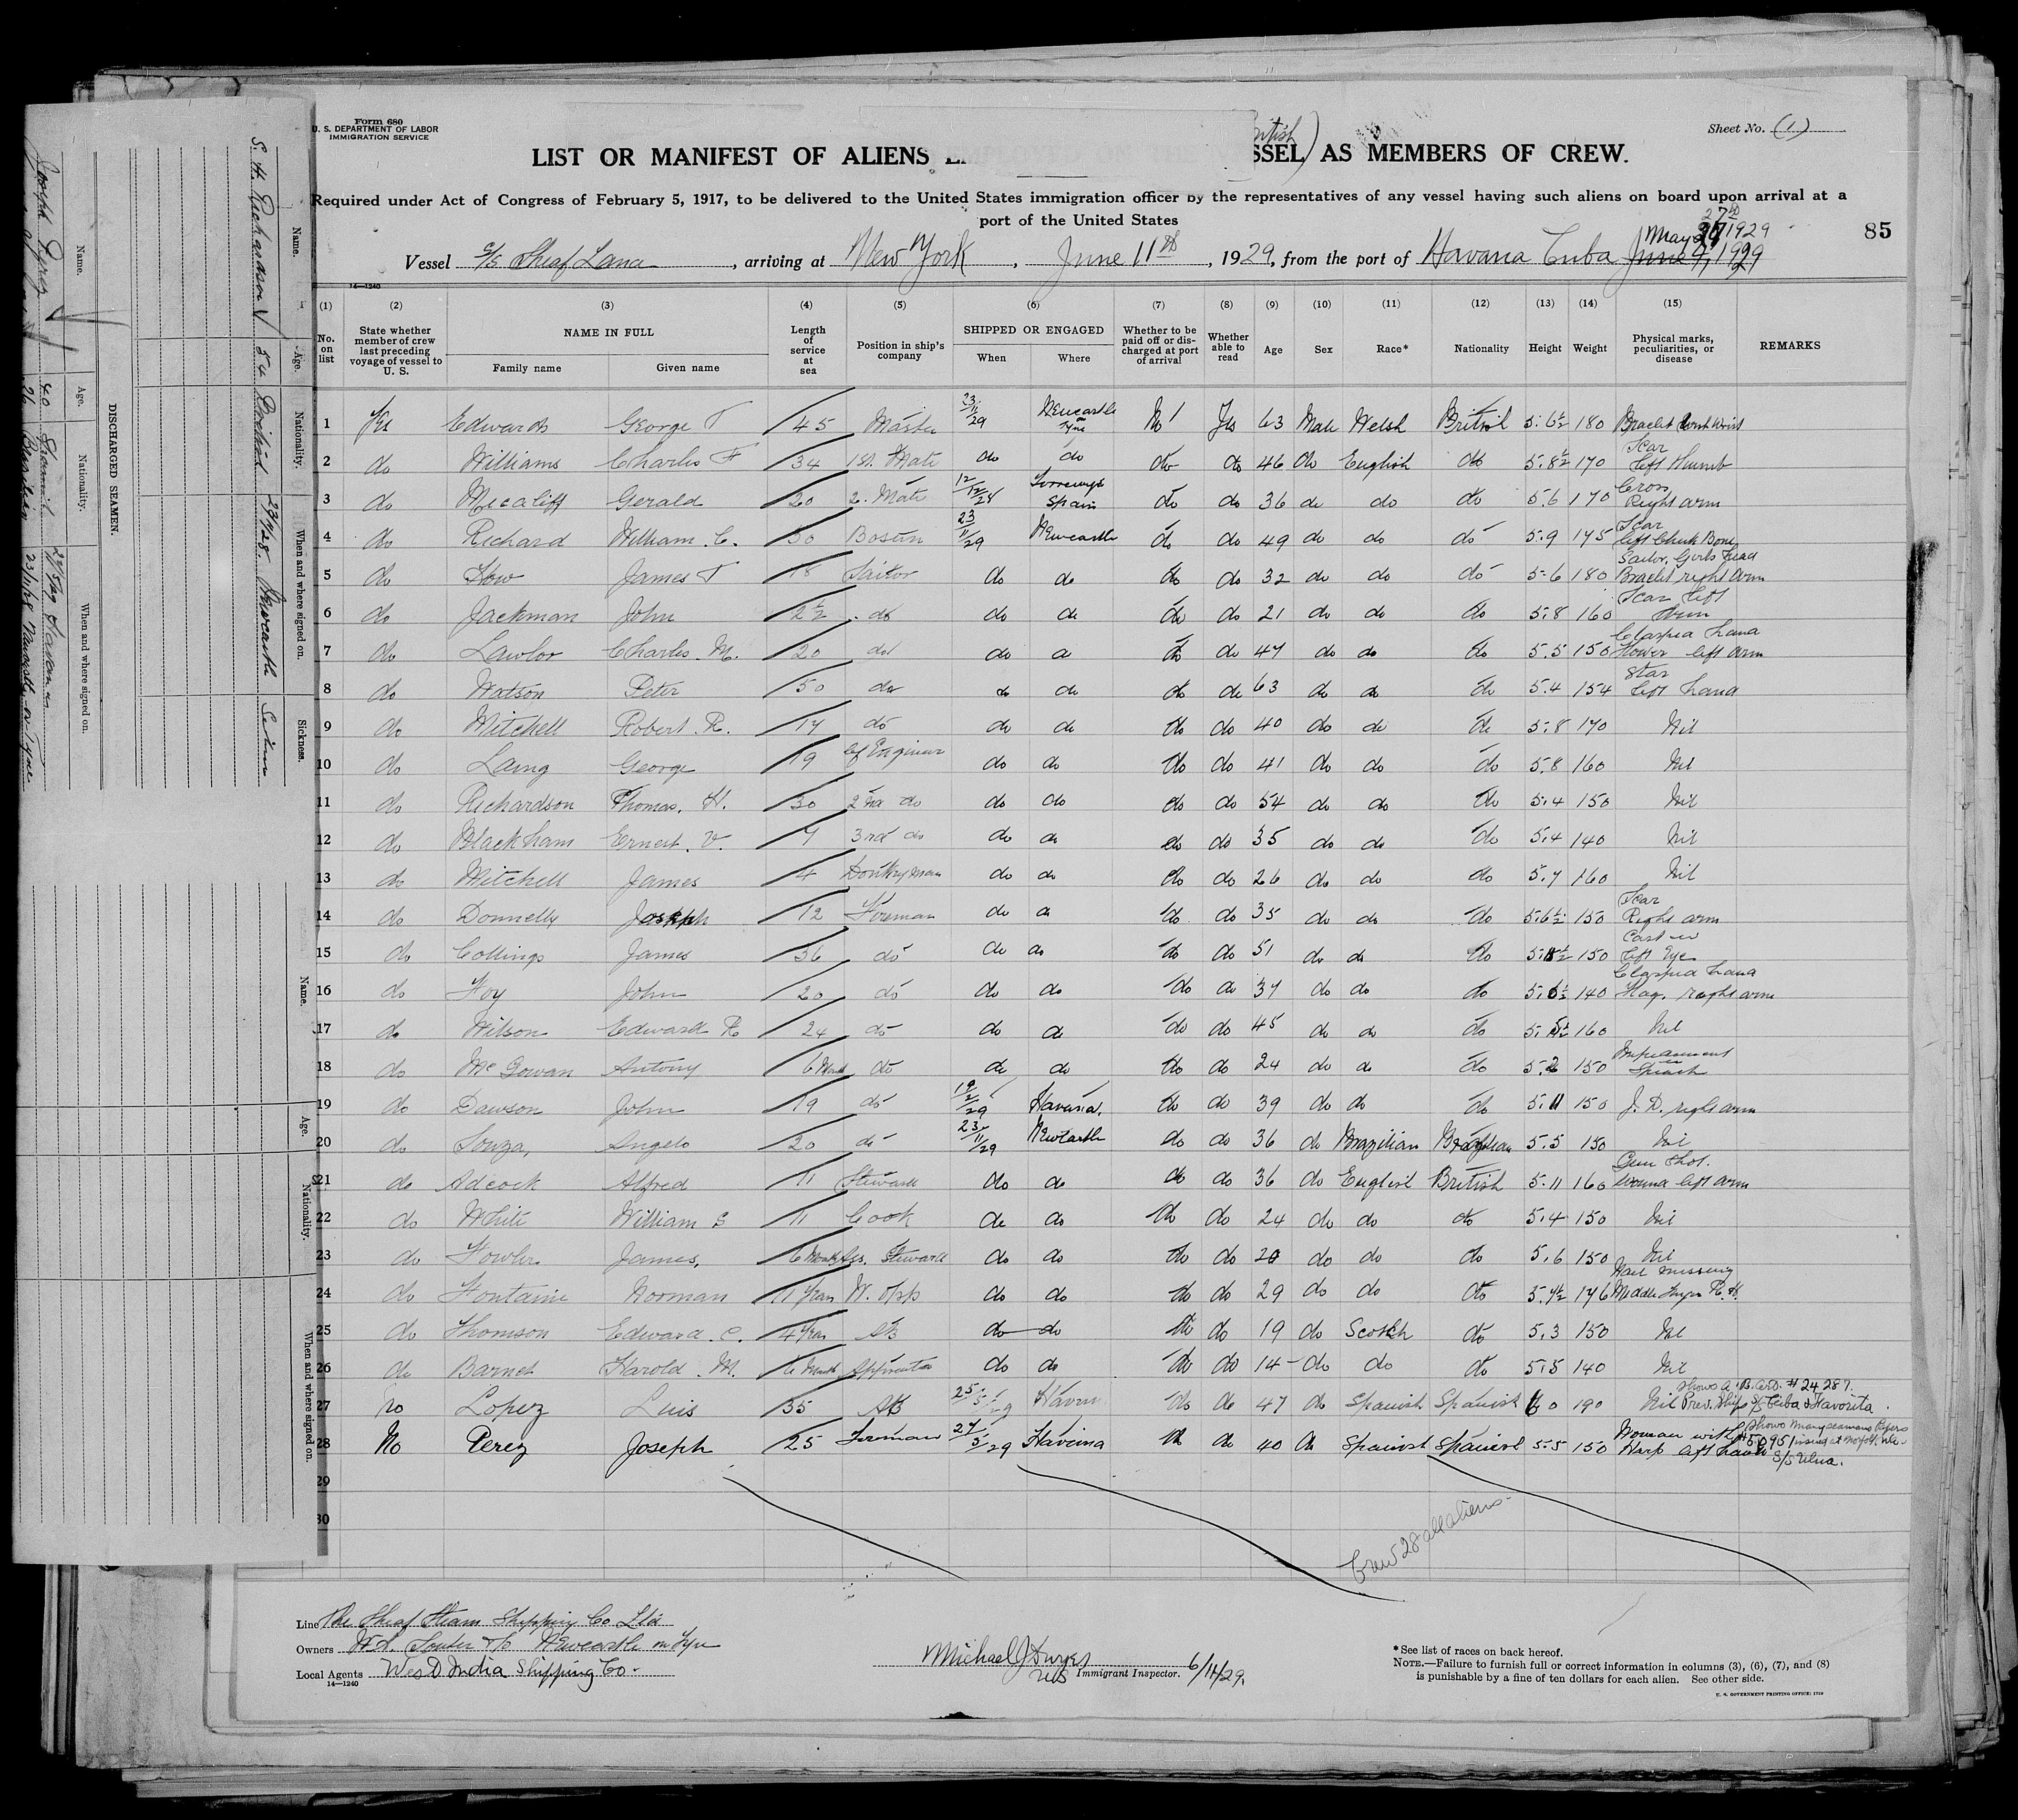 Form 680
U. S. DEPARTMENT OF LABOR
IMMIGRATION SERVICE
Sheet No. (1)
LIST OR MANIFEST OF ALIENS EMPLOYED ON THE VESSEL AS MEMBERS OF CREW.
Required under Act of Congress of February 5, 1917, to be delivered to the United States immigration officer by the representatives of any vessel having such aliens on board upon arrival at a
port of the United States
85
Vessel S/S Sheaf Lane, arriving at New York, June 11th, 1929, from the port of Havana Cuba
14—1240
(1) (2) (3) (4) (5) (6) (7) (8) (9) (10) (11) (12) (13) (14) (15)
No. on list State whether member of crew last preceding voyage of vessel to U. S. NAME IN FULL Family name Given name Length of service at sea Position in ship's company SHIPPED OR ENGAGED When Where Whether to be paid off or discharged at port of arrival Whether able to read Age Sex Race* Nationality Height Weight Physical marks, peculiarities, or disease REMARKS
1 Yes Edwards George T 45 Master 23/11/29 Newcastle on Tyne No Yes 63 Male Welsh British 5.6½ 180
2 do Williams Charles F 34 1st. Mate do do do do 46 do English do 5.8½ 170 Scar left thumb
3 do Gerald 20 2. Mate Spain do do 36 do do do 5.6 170 Cross Right arm
4 do Richard William. C. 30 Bosun 23/11/29 Newcastle do do 49 do do do 5.9 175 Scar left Cheek Bone
5 do How James T 18 Sailor do do do do 32 do do do 5.6 180 Sailor, Girls head Bracelet right arm
6 do Jackman John 2½ do do do do do 21 do do do 5.8 160 Scar left arm
7 do Lawlor Charles. M. 20 do do do do do 47 do do do 5.5 150 Clasped hand flower left arm
8 do Watson Peter 50 do do do do do 63 do do do 5.4 154 Star left hand
9 do Mitchell Robert. R. 17 do do do do do 40 do do do 5.8 170 Nil
10 do Laing George 19 Cf Engineer do do do do 41 do do do 5.8 160 Nil
11 do Richardson Thomas. H. 30 2nd do do do do do 54 do do do 5.4 150 Nil
12 do Blackham Ernest. V. 7 3rd do do do do do 35 do do do 5.4 140 Nil
13 do Mitchell James 4 Donkeyman do do do do 26 do do do 5.7 160 Nil
14 do Donnelly Joseph 12 Fireman do do do do 35 do do do 5.6½ 150 Scar Right arm
15 do Collings James 36 do do do do do 51 do do do 150 Cast in left Eye
16 do Foy John 20 do do do do do 37 do do do 140 Clasped hand flag. right arm
17 do Wilson Edward R 24 do do do do do 45 do do do 160 Nil
18 do McGowan Antony 6 Month do do do do do 24 do do do 5.2 150 Impediment in Speech
19 do Dawson John 19 do Havana. do do 39 do do do 5.11 150 J. D. right arm
20 do Souza, Angelo 20 do 23/11/29 Newcastle do do 36 do Brazilian Brazilian 5.5 150 Nil
21 do Adcock Alfred 11 Steward do do do do 36 do English British 5.11 160 Gun Shot. wound left arm
22 do White William S 11 Cook do do do do 24 do do do 5.4 150 Nil
23 do Fowler James, 6 Months Ass. Steward do do do do 20 do do do 5.6 150 Nil
24 do Fontaine Norman 11 years W. Opp do do do do 29 do do do 5.4½ 146 Nail missing Middle finger R. H.
25 do Thomson Edward. C. 4 years AB do do do do 19 do Scotch do 5.3 150 Nil
26 do Barnet Harold. M. 6 Month Apprentice do do do do 14 do do do 5.5 140 Nil
27 No Lopez Luis 35 AB 25/5/29 Havana do do 47 do Spanish Spanish 190 Nil Shows a. B. Cert. #24287. Prev. Ship S/S Ceiba & Favorita
28 No Perez Joseph 25 Fireman 27/5/29 Havana do do 40 do Spanish Spanish 5.5 150 Woman with Harp left hand
29
30
Crew 28 all aliens
Line The Sheaf Steam Shipping Co Ltd
Owners W. A. Souter & Co Newcastle on Tyne
Local Agents West India Shipping Co.
14—1240
Michael J Dwyer
Immigrant Inspector. 6/11/29.
*See list of races on back hereof.
NOTE.—Failure to furnish full or correct information in columns (3), (6), (7), and (8)
is punishable by a fine of ten dollars for each alien. See other side.
U. S. GOVERNMENT PRINTING OFFICE: 1929
DISCHARGED SEAMEN.
Name. Age. Nationality. When and where signed on.
Joseph Perez 40 Spanish 27 May Havana
26 Brazilian 23/11/28 Newcastle on Tyne
Name. Age. Nationality. When and where signed on. Sickness.
Richardson 54 British 23/11/28. Newcastle
Name. Age. Nationality. When and where signed on.